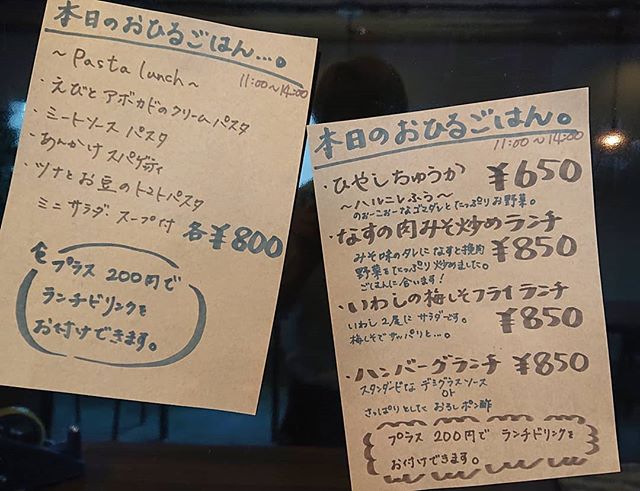 本日のおひるごはん…。
11:00〜14:00
〜Pasta lunch〜
・えびとアボカドのクリームパスタ
・ミートソースパスタ
・あんかけスパゲティ
・ツナとお豆のトマトパスタ
ミニサラダ・スープ付 各¥800
プラス200円で
ランチドリンクを
お付けできます。
本日のおひるごはん。
11:00〜14:00
・ひやしちゅうか ¥650
〜ハルニレふう〜
のおーこおーなゴマダレとたっぷりお野菜。
・なすの肉みそ炒めランチ
¥850
みそ味のタレになすと挽肉
野菜をたっぷり炒めました。
ごはんに合います!
・いわしの梅しそフライランチ
¥850
いわし2尾にサラダです。
梅しそでサッパリと…。
・ハンバーグランチ ¥850
スタンダードなデミグラスソース
or
さっぱりとしてくおろしポン酢
プラス200円でランチドリンクを
お付けできます。